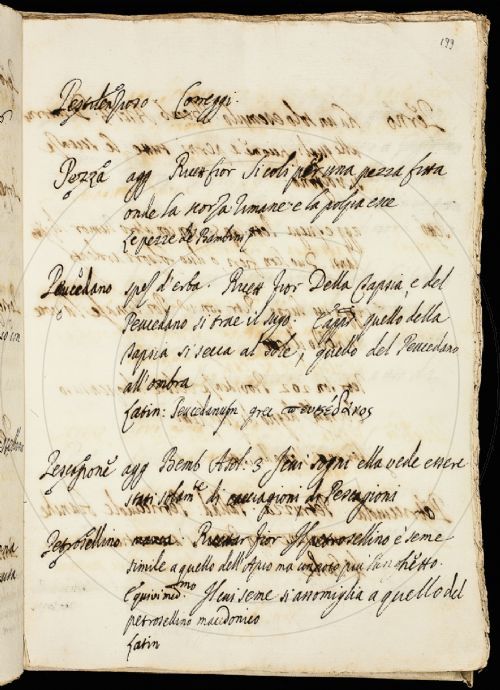 199
Pestilenzioso Correggi.
Pezza agg Ricett fior Si coli per una pezza fitta
onde la scorza rimane e la polpa esce
Le pezze de Bambini
Peucedano spe d'erba. Ricett fior Della Tapsia, e del
Peucedano si trae il sugo. quello della
tapsia si secca al sole, quello del Peucedano
all'ombra
Latin: Peucedanum grec πευκέδανος
agg Bemb Asol: 3 sogni ella vede essere
stati di cacciagioni di Pescagioni
Petrosellino Ricettar fior Il petrosellino è seme
simile a quello dell'Apio ma un poco più lunghetto
E quivi med.mo Il cui seme s'assomiglia a quello del
petrosellino macedonico
Latin